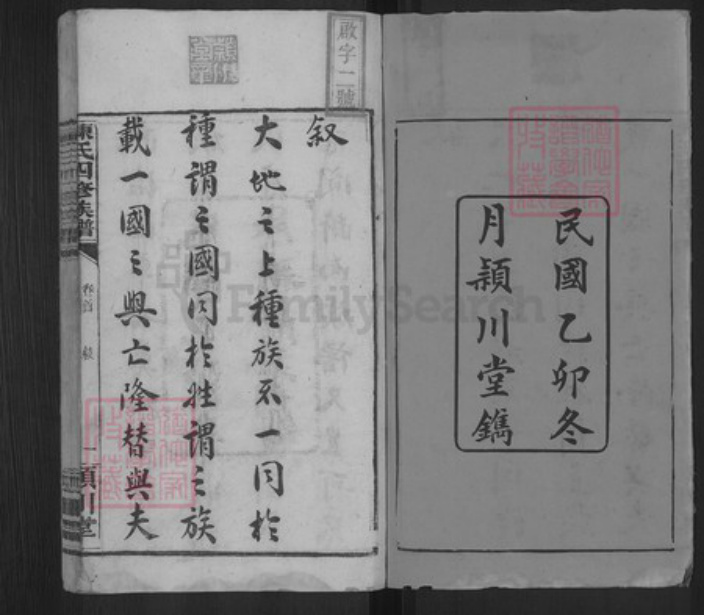 民國乙卯冬
月潁川堂鐫
啟字二號
敘
大地之上種族不一同於
種謂之國同於姓謂之族
載一國之興亡隆替與夫
陳氏四修族譜
卷首
潁川堂
FamilySearch